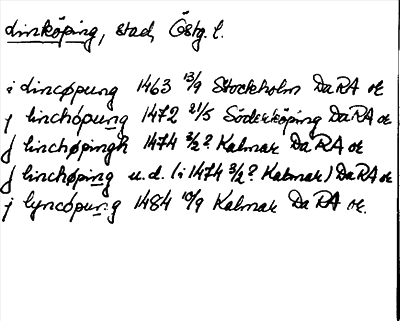 Linköping, stad, Östg. l.
i Lincøpung 1463 13/9 Stockholm DaRA or
j linchöpung 1472 21/5 Söderköping DaRA or
J linchøpingh 1474 3/2? Kalmar DaRA or
J linchøping u.d. (i 1474 3/2? Kalmar) DaRA or
j lyncöpung 1484 10/9 Kalmar DaRA or.